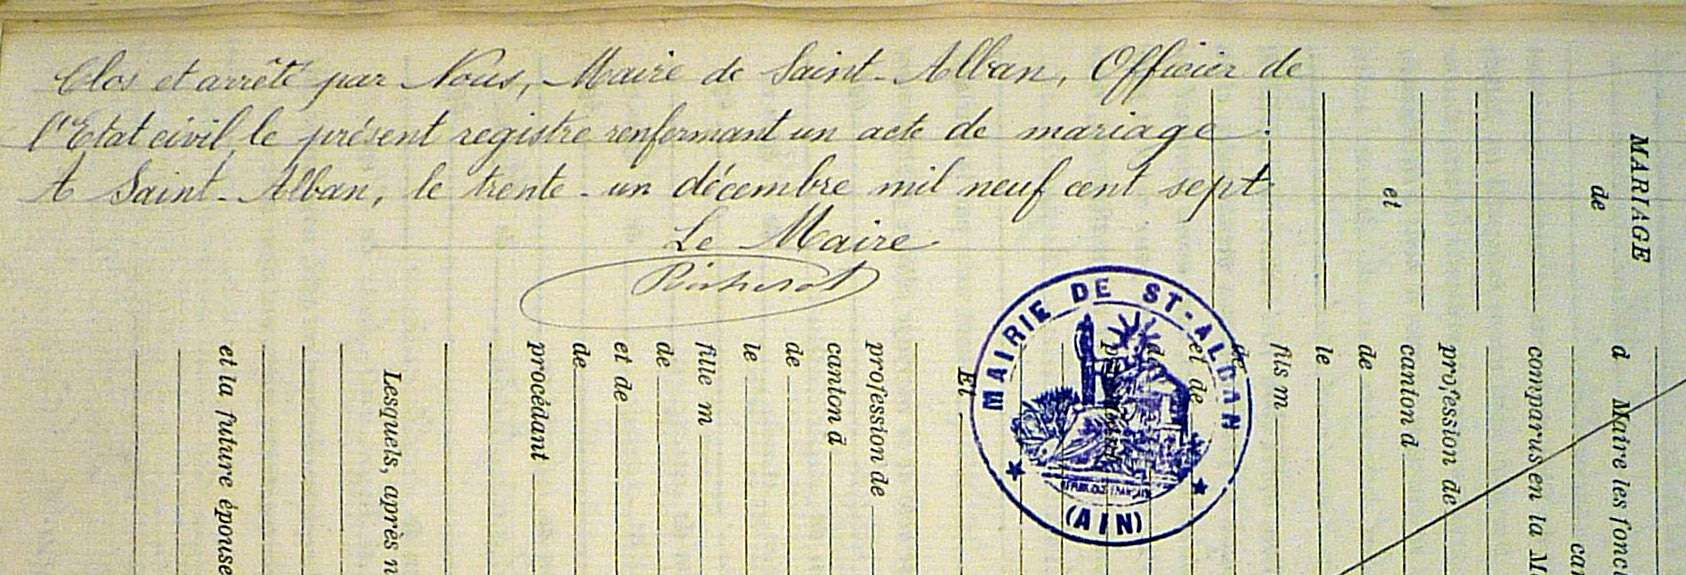 Clos et arrêté par Nous, Maire de Saint-Alban, Officier de
l'Etat civil, le présent registre renfermant un acte de mariage.
A Saint-Alban, le trente-un décembre mil neuf cent sept
Le Maire
MAIRIE DE ST-ALBAN
(AIN)
MARIAGE
de
et
d Maire les fonc
comparus en la M
profession de
canton d
de
le
fils m
de
et de
Et
profession de
canton d
de
le
fille m
de
et de
de
procédant
Lesquels, après
et la future épouse